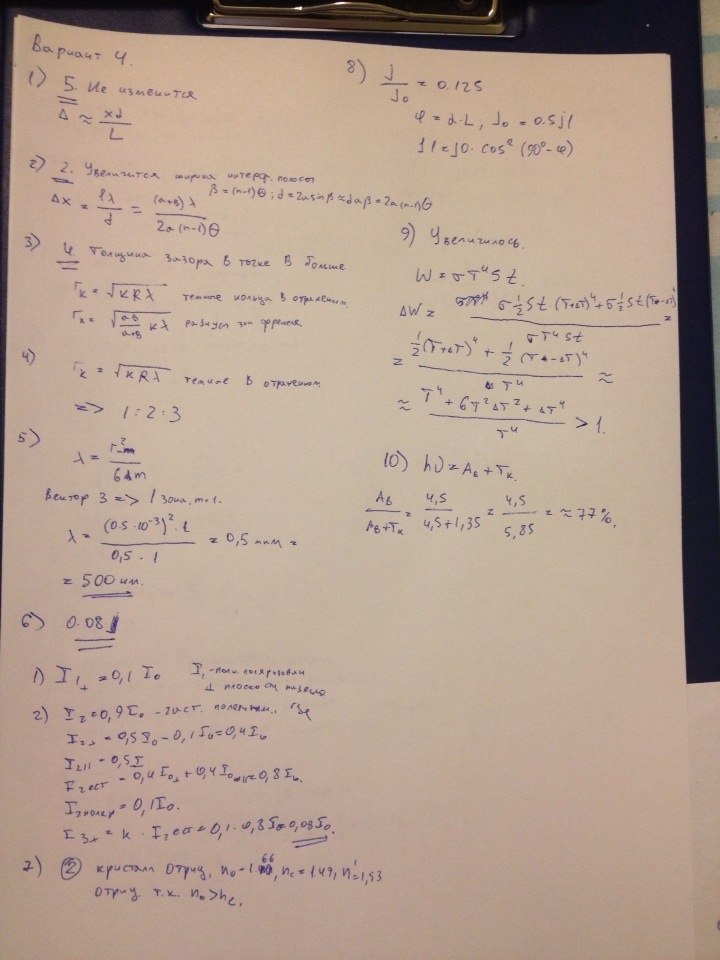 Вариант 4.
1) 5. Не изменится
Δ ≈ xd/L
2) 2. Увеличится ширина интерф. полосы
β = (n-1)Θ; d = 2a sinβ ≈ 2aβ = 2a(n-1)Θ
Δx = lλ/d = (a+b)λ / 2a(n-1)Θ
3) 4 Толщина зазора в точке B больше
r_k = √(kRλ) темные кольца в отражении.
r_k = √(ab/(a+b) kλ) радиусы зон френеля.
4) r_k = √(kRλ) темные в отраженном
=> 1:2:3
5) λ =
Вектор 3 => 1 зона, m=1.
λ = (0.5·10⁻³)²·1 / 0,5·1 = 0,5 мкм =
= 500 нм.
6) 0.08
1) I₁⊥ = 0,1 I₀ I₁ - полн. поляризован
⊥ плоскости падения
2) I₂ = 0,9 I₀ - част. поляриз., где
I₂⊥ = 0,5 I₀ - 0,1 I₀ = 0,4 I₀
I₂|| = 0,5 I
I₂ ест = 0,4 I₀⊥ + 0,4 I₀|| = 0,8 I₀.
I₂ поляр = 0,1 I₀.
I₃⊥ = k · I₂ ест = 0,1 · 0,8 I₀ = 0,08 I₀.
7) ② кристалл отриц. n₀ = 1.66, nₑ = 1.49, n' = 1,53
отриц. т.к. n₀ > nₑ.
8) j/J₀ = 0.125
φ = α·L, J₀ = 0.5 j1
j1 = j0 · cos² (90° - φ)
9) Увеличилось.
W = σT⁴St.
ΔW = σ½St (T+ΔT)⁴ + σ½St (T-ΔT)⁴ / σT⁴St =
= ½(T+ΔT)⁴ + ½(T-ΔT)⁴ / T⁴ ≈
≈ T⁴ + 6T²ΔT² + ΔT⁴ / T⁴ > 1.
10) hυ = Aв + Tк.
Aв / Aв+Tк = 4,5 / 4,5+1,35 = 4,5 / 5,85 = ≈ 77%.